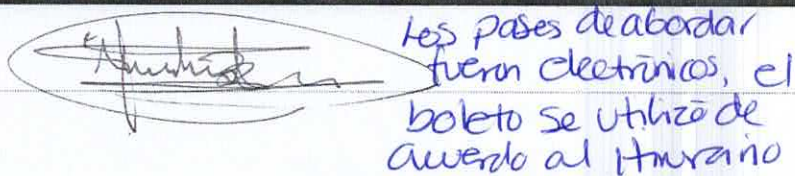 los pases de abordar
fueron electrónicos, el
boleto se utilizó de
acuerdo al Itinerario